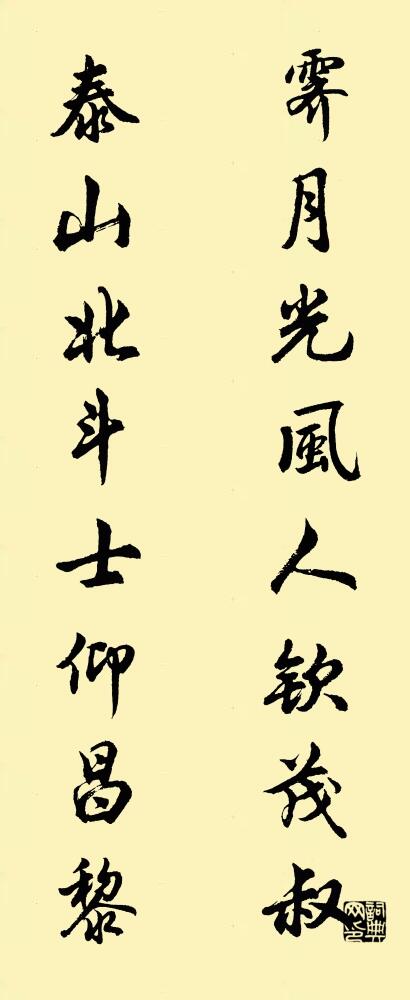 霽月光風人欽茂叔
泰山北斗士仰昌黎
詞典網印